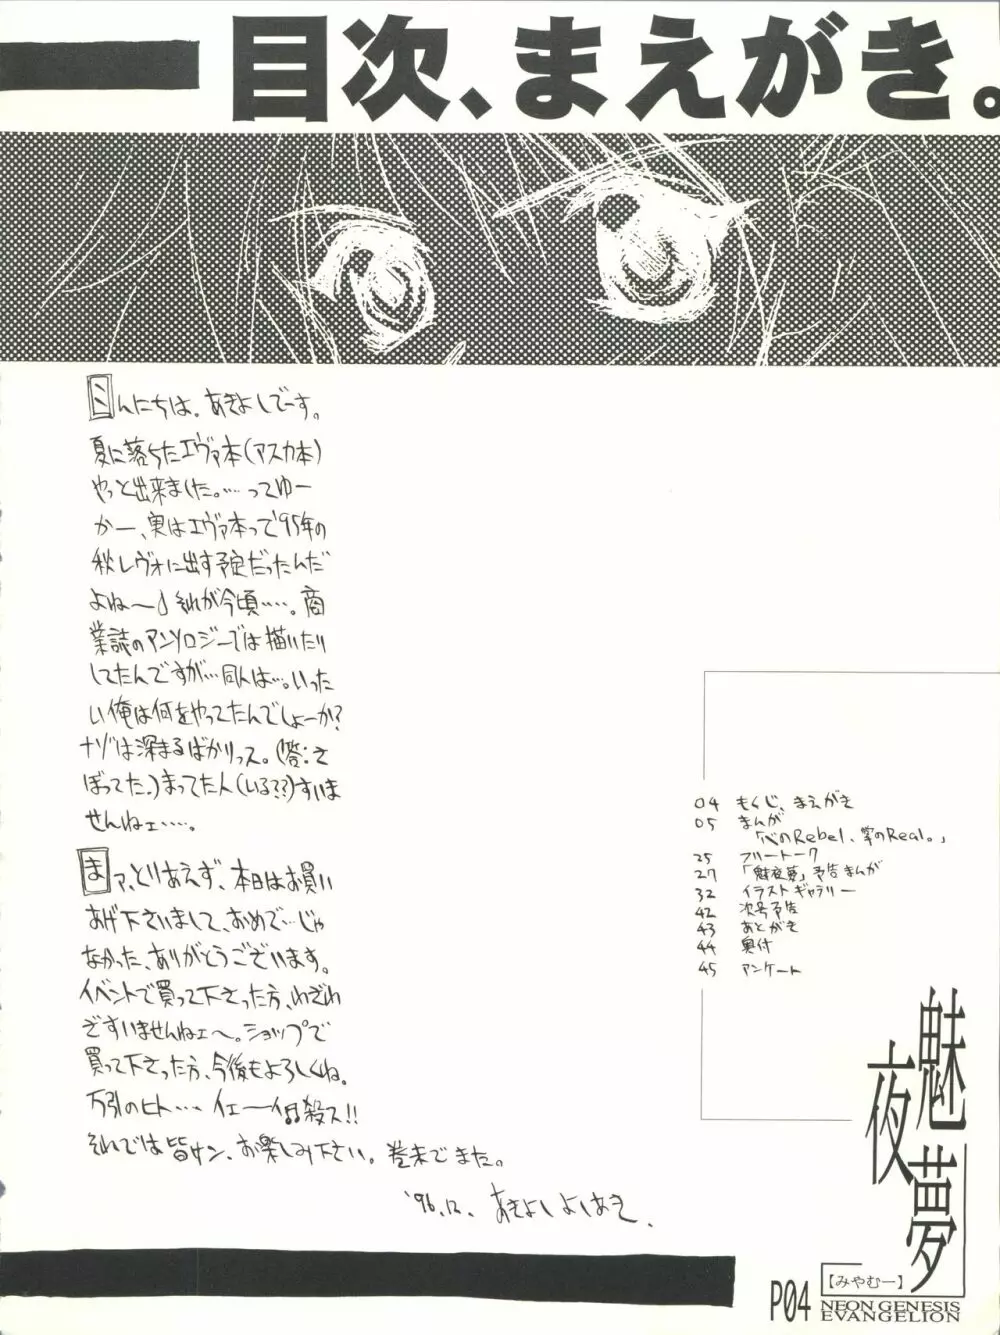 目次、まえがき。
こんにちは。あきよしでーす。
夏に落ちたエヴァ本(アスカ本)
やっと出来ました。…ってゆー
かー、実はエヴァ本って'95年の
秋レヴォに出す予定だったんだ
よね〜♪それが今頃…。商
業誌のアンソロジーでは描いたり
してたんですが…同人は…。いった
い俺は何をやってたんでしょーか?
ナゾは深まるばかりっス。(答:さ
ぼってた。)まってた人(いる??)すいま
せんねェ…。
まァ、とりあえず、本日はお買い
あげ下さいまして、おめで…じゃ
なかった、ありがとうございます。
イベントで買って下さった方、わざわ
ざすいませんねェ〜。ショップで
買って下さった方、今後もよろしくね。
万引のヒト… イェー 殺ス!!
それでは皆サン、お楽しみ下さい。巻末でまた。
'96.12. あきよしよしあき.
04 もくじ、まえがき
05 まんが
「心のRebel、掌のReal。」
25 フリートーク
27 「魅夜夢」予告まんが
32 イラストギャラリー
42 次号予告
43 あとがき
44 奥付
45 アンケート
魅夜夢
【みやむー】
NEON GENESIS
EVANGELION
P04